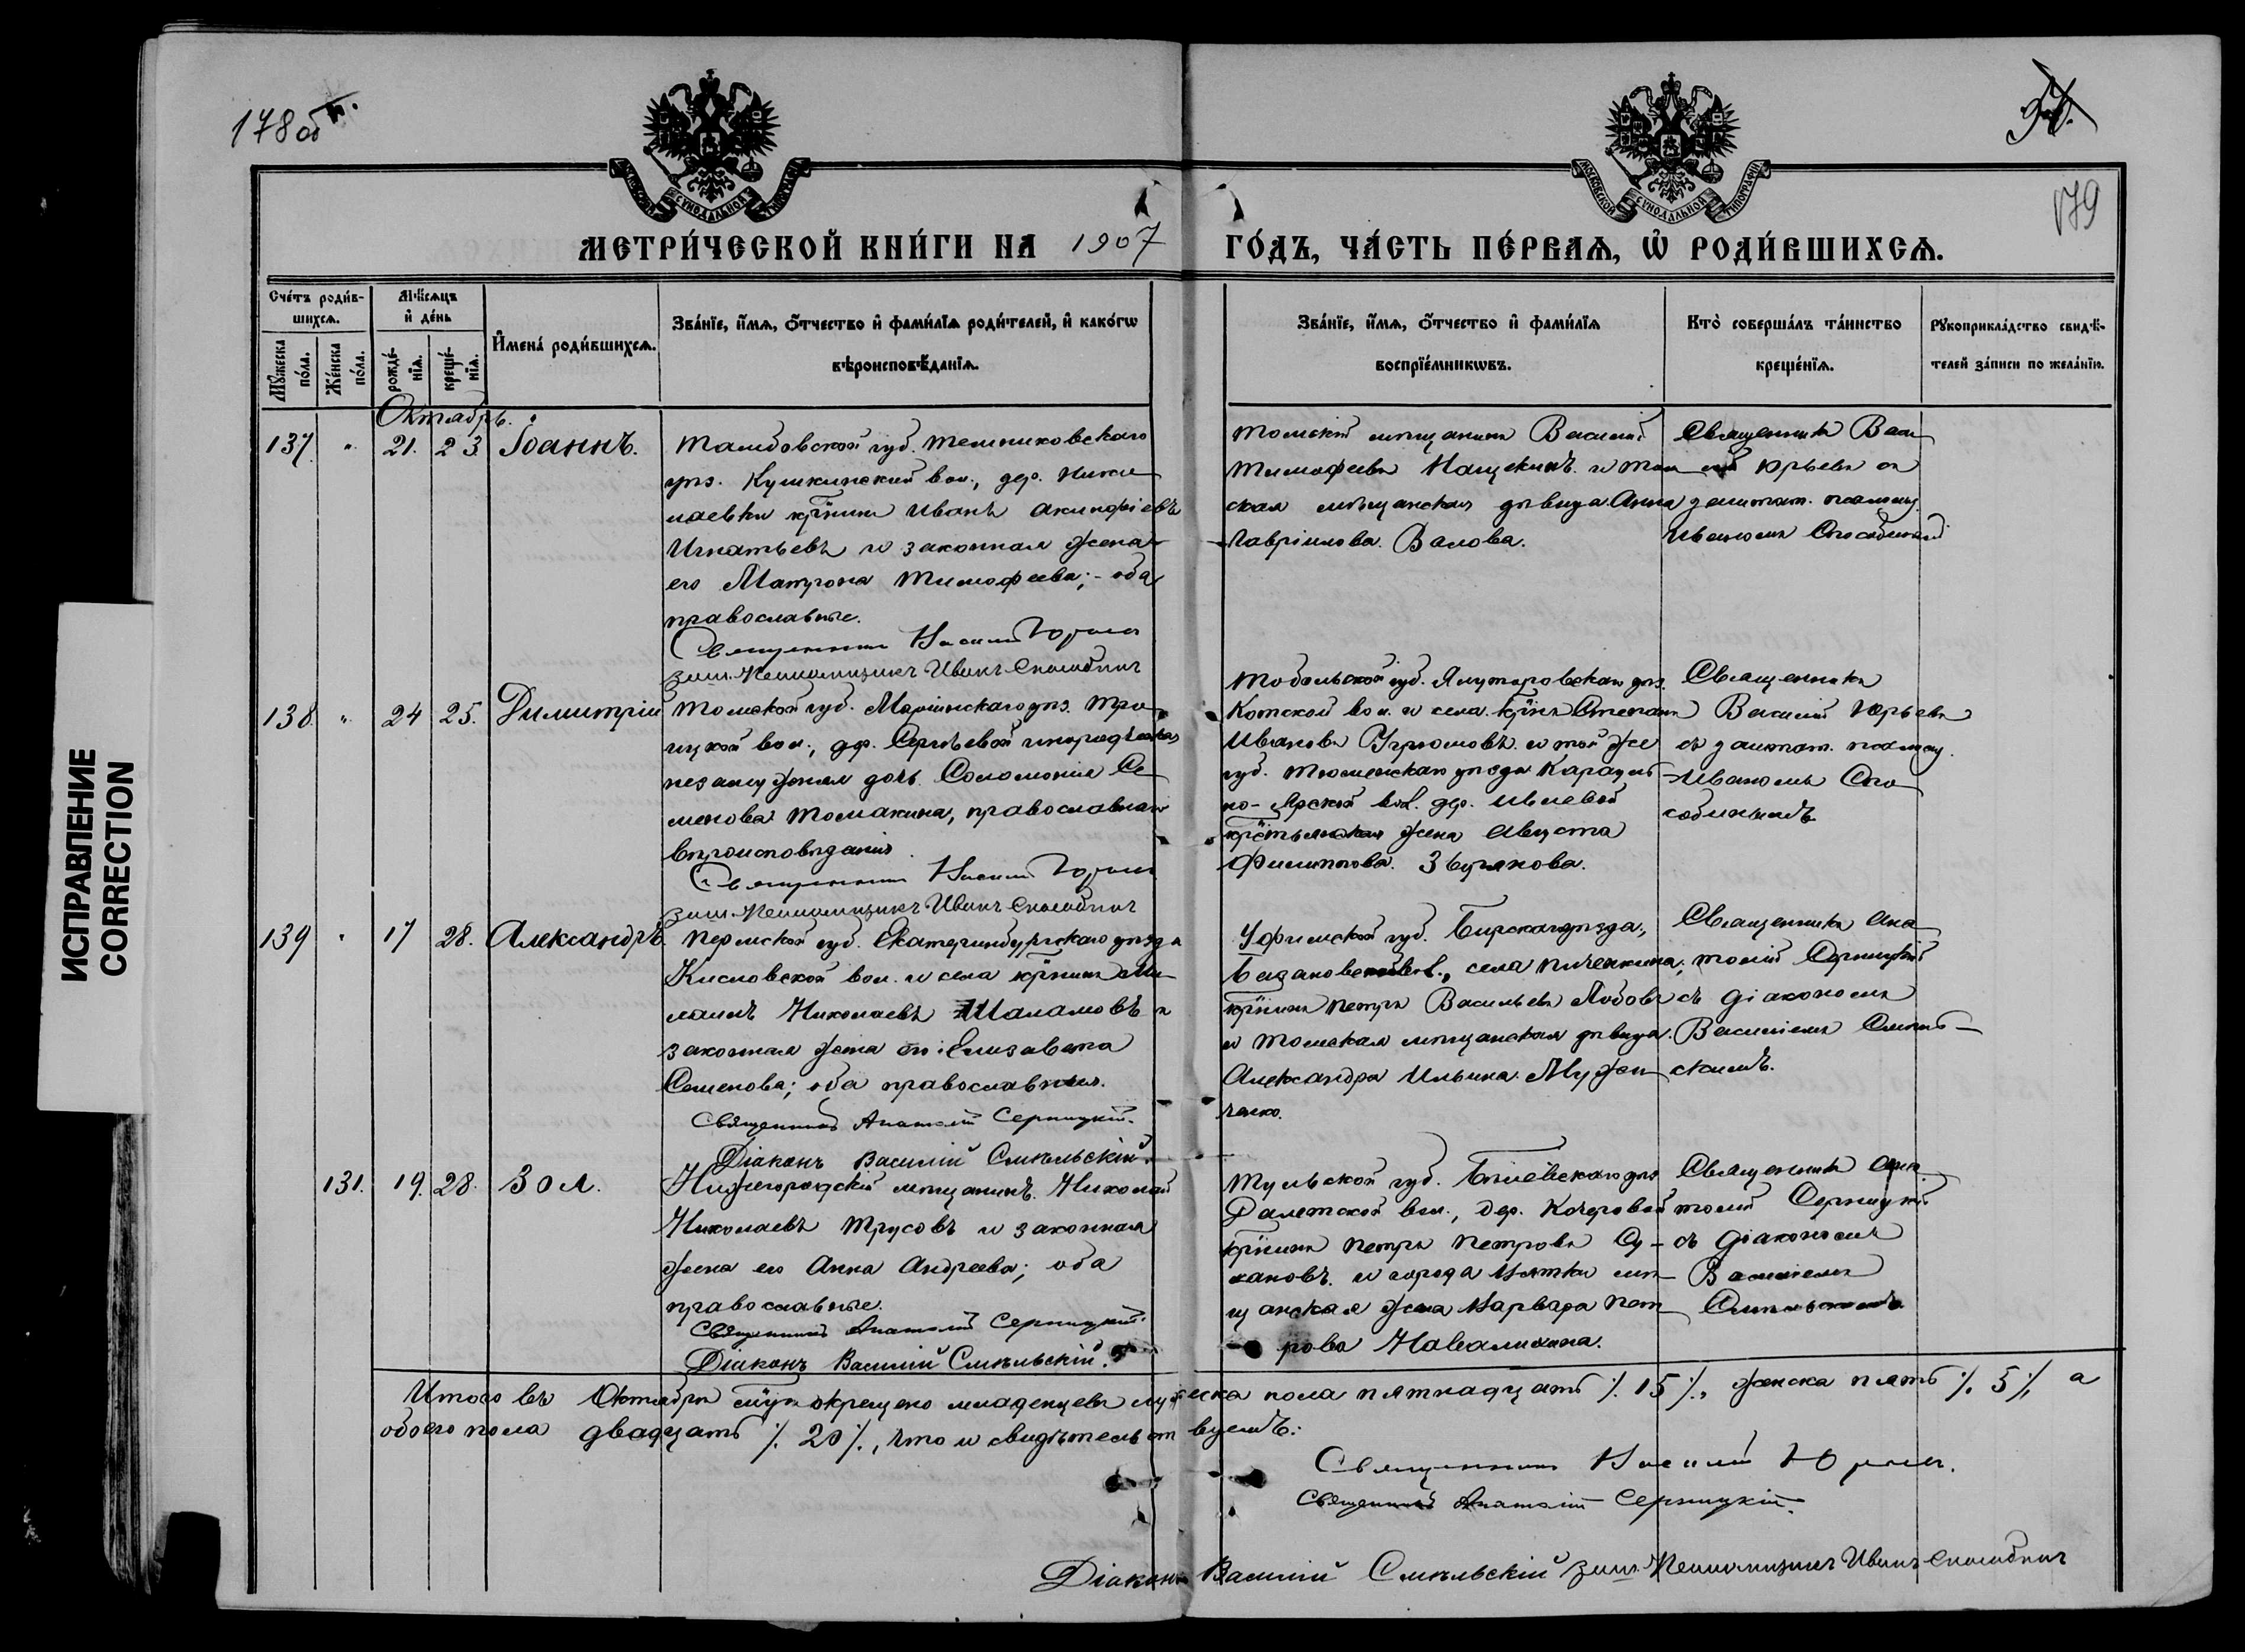 178 об
179
ИСПРАВЛЕНИЕ
CORRECTION
МОСКОВСКОЙ СѴНОДАЛЬНОЙ ТИПОГРАФІИ
МОСКОВСКОЙ СѴНОДАЛЬНОЙ ТИПОГРАФІИ
МЕТРИ́ЧЕСКОЙ КНИ́ГИ НА 1907 ГО́ДЪ, ЧА́СТЬ ПЕ́РВАѦ, Ѡ҆ РОДИ́ВШИХСѦ.
Сче́тъ роди́в-
шихсѧ.
Мꙋжеска по́ла.
Же́нска по́ла.
Мѣ́сѧцъ
и҆ де́нь
рожде́-
нїѧ.
креще́-
нїѧ.
И҆мена̀ роди́вшихсѧ.
Зва́нїе, и҆́мѧ, ѻ҆́тчество и҆ фами́лїѧ роди́телей, и҆ како́гѡ
вѣроисповѣ́данїѧ.
Зва́нїе, и҆́мѧ, ѻ҆́тчество и҆ фами́лїѧ
воспрїе́мникѡвъ.
Кто̀ соверша́лъ та́инство
креще́нїѧ.
Рꙋкоприкла́дство свидѣ́-
телей за́писи по жела́нїю.
Октябрь.
137. " 21. 23 Іоаннъ.
Тамбовской губ. Темниковскаго
уѣз. Кушкинской вол., дер. Нико
лаевки кр̃нинъ Иванъ Акинфіевъ
Игнатьевъ и законная жена
его Матрона Тимофеева; - оба
православные.
Священникъ Василій Юрьевъ
заш. Псаломщикъ Иванъ Способинъ
Томскій мѣщанинъ Василій
Тимофеевъ Нащекинъ и том
ская мѣщанская дѣвица Анна
Гавріилова Валова.
Священникъ Васи
лій Юрьевъ съ
зашташ. псаломщ.
Иваномъ
138. " 24 25. Димитрій
Томской губ. Маріинскаго уѣз. Тро
ицкой вол., дер. Сергѣевой инородческая
незамужняя дочь Соломонія Се
менова Томакина, православнаго
вѣроисповѣданія.
Священникъ Василій Юрьевъ
заш. Псаломщикъ Иванъ Способинъ
Тобольской губ. Ялуторовскаго уѣз.
Котской вол. и села кр̃нъ Степанъ
Ивановъ Угрюмовъ и той же
губ. Тюменскаго уѣзда Караульно-
Ярской вол. дер.
крестьянская жена Августа
Филиппова Звѣрякова.
Священникъ
Василій Юрьевъ
съ зашташ. псаломщ.
Иваномъ Спо
собинымъ
139 " 17 28. Александръ.
Пермской губ. Екатеринбургскаго уѣзда
Кисловской вол. и села кр̃нинъ Ми
хаилъ Николаевъ Шаламовъ и
законная жена его Елизавета
Семенова; оба православныя.
Священникъ Анатолій Серницкій.
Діаконъ Василій Смѣльскій.
Уфимской губ. Бирскаго уѣзда,
вол., села Пиченкина,
кр̃нинъ Петръ Васильевъ Лобовъ
и Томская мѣщанская дѣвица
Александра Ильина Мужен
ченко.
Священникъ Ана
толій Серницкій
съ діакономъ
Василіемъ Смѣль-
скимъ.
131. 19. 28. Зоя.
Нижегородскій мѣщанинъ Николай
Николаевъ Трусовъ и законная
жена его Анна Андреева; оба
православные.
Священникъ Анатолій Серницкій.
Діаконъ Василій Смѣльскій.
Тульской губ. Бѣлевскаго уѣз.
вол., дер. Кочеровой
кр̃нинъ Петръ Петровъ Су-
хановъ и города Вятки мѣ
щанская жена Варвара Пет
рова Навалихина.
Священникъ Ана
толій Серницкій
съ діакономъ
Василіемъ
Смѣльскимъ
Итого въ Октябрѣ м̃цѣ окрещено младенцевъ мужеска пола пятнадцать /. 15 /., женска пять /. 5 /., а
обоего пола двадцать /. 20 /., что и свидѣтельствуемъ:
Священникъ Василій Юрьевъ.
Священникъ Анатолій Серницкій.
Діаконъ Василій Смѣльскій заш. Псаломщикъ Иванъ Способинъ